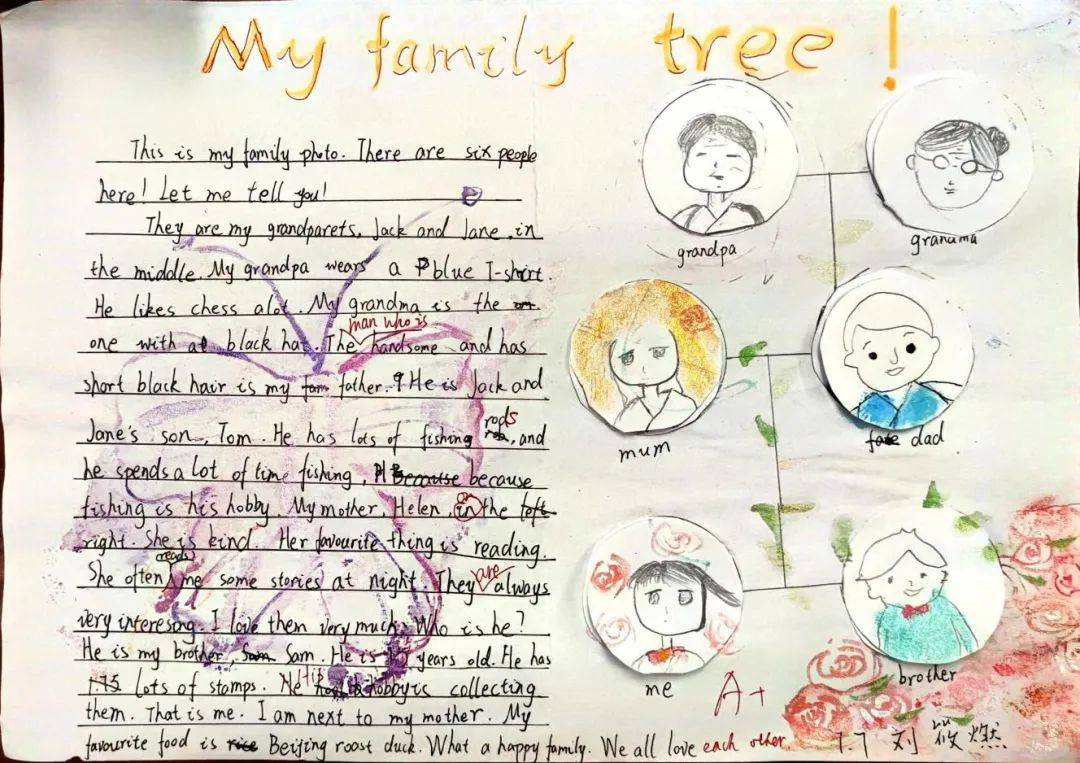 My family tree!
This is my family photo. There are six people
here! Let me tell you!
They are my grandparets, Jack and Jane, in
the middle. My grandpa wears a blue T-shirt.
He likes chess alot. My grandma is the
man who is
one with a black hat. The handsome and has
short black hair is my father. He is Jack and
rods
Jane's son, Tom. He has lots of fishing , and
he spends a lot of time fishing, because
on
fishing is his hobby. My mother, Helen, in the left
right. She is kind. Her favourite thing is reading.
reads
She often me some stories at night. They are always
very interesong. I love them very much. Who is he?
He is my brother, Sam. He is 15 years old. He has
lots of stamps. His hobby is collecting
them. That is me. I am next to my mother. My
favourite food is rice Beijing roast duck. What a happy family. We all love each other.
grandpa
grandma
mum
dad
me
brother
A+
1.7 刘筱燃